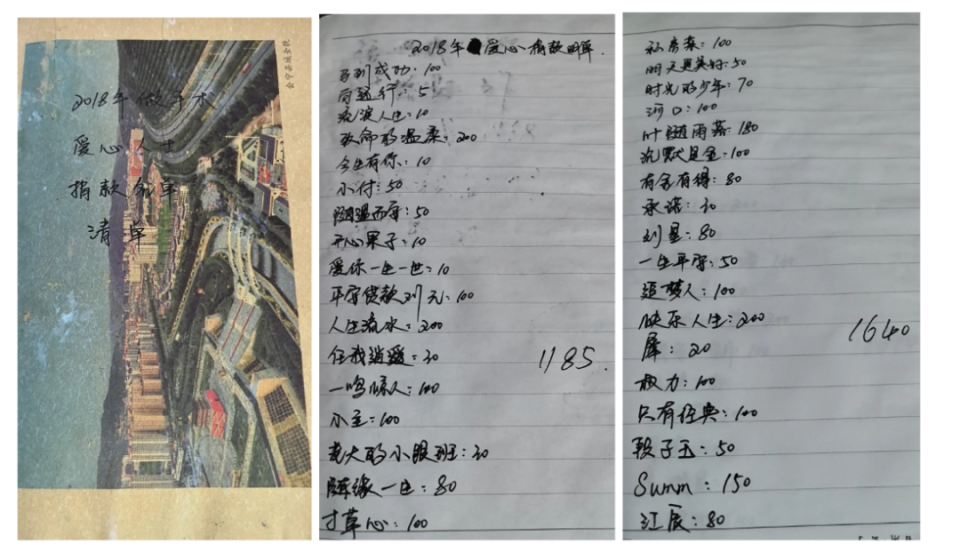 2018年做手术
爱心人士
捐款名单
清单
2018年爱心捐款明单
马到成功:100
荷继行:5
疯淀人生:10
致命的温柔:200
今生有你:10
小付:50
随遇而安:50
开心果子:10
爱你一生一世:10
平安贷款刘元:100
人生流水:200
任我逍遥:30
一鸣惊人:100
小主:100
老大的小跟班:30
随缘一生:80
寸草心:100
1185
私房菜:100
明天更美好:50
时光的少年:70
河口:100
叶随雨落:180
沉默是金:100
有舍有得:80
承诺:30
刘星:80
一生平安:50
追梦人:100
快乐人生:200
犀:20
权力:100
只有经典:100
段子五:50
Summ:150
江辰:80
1640